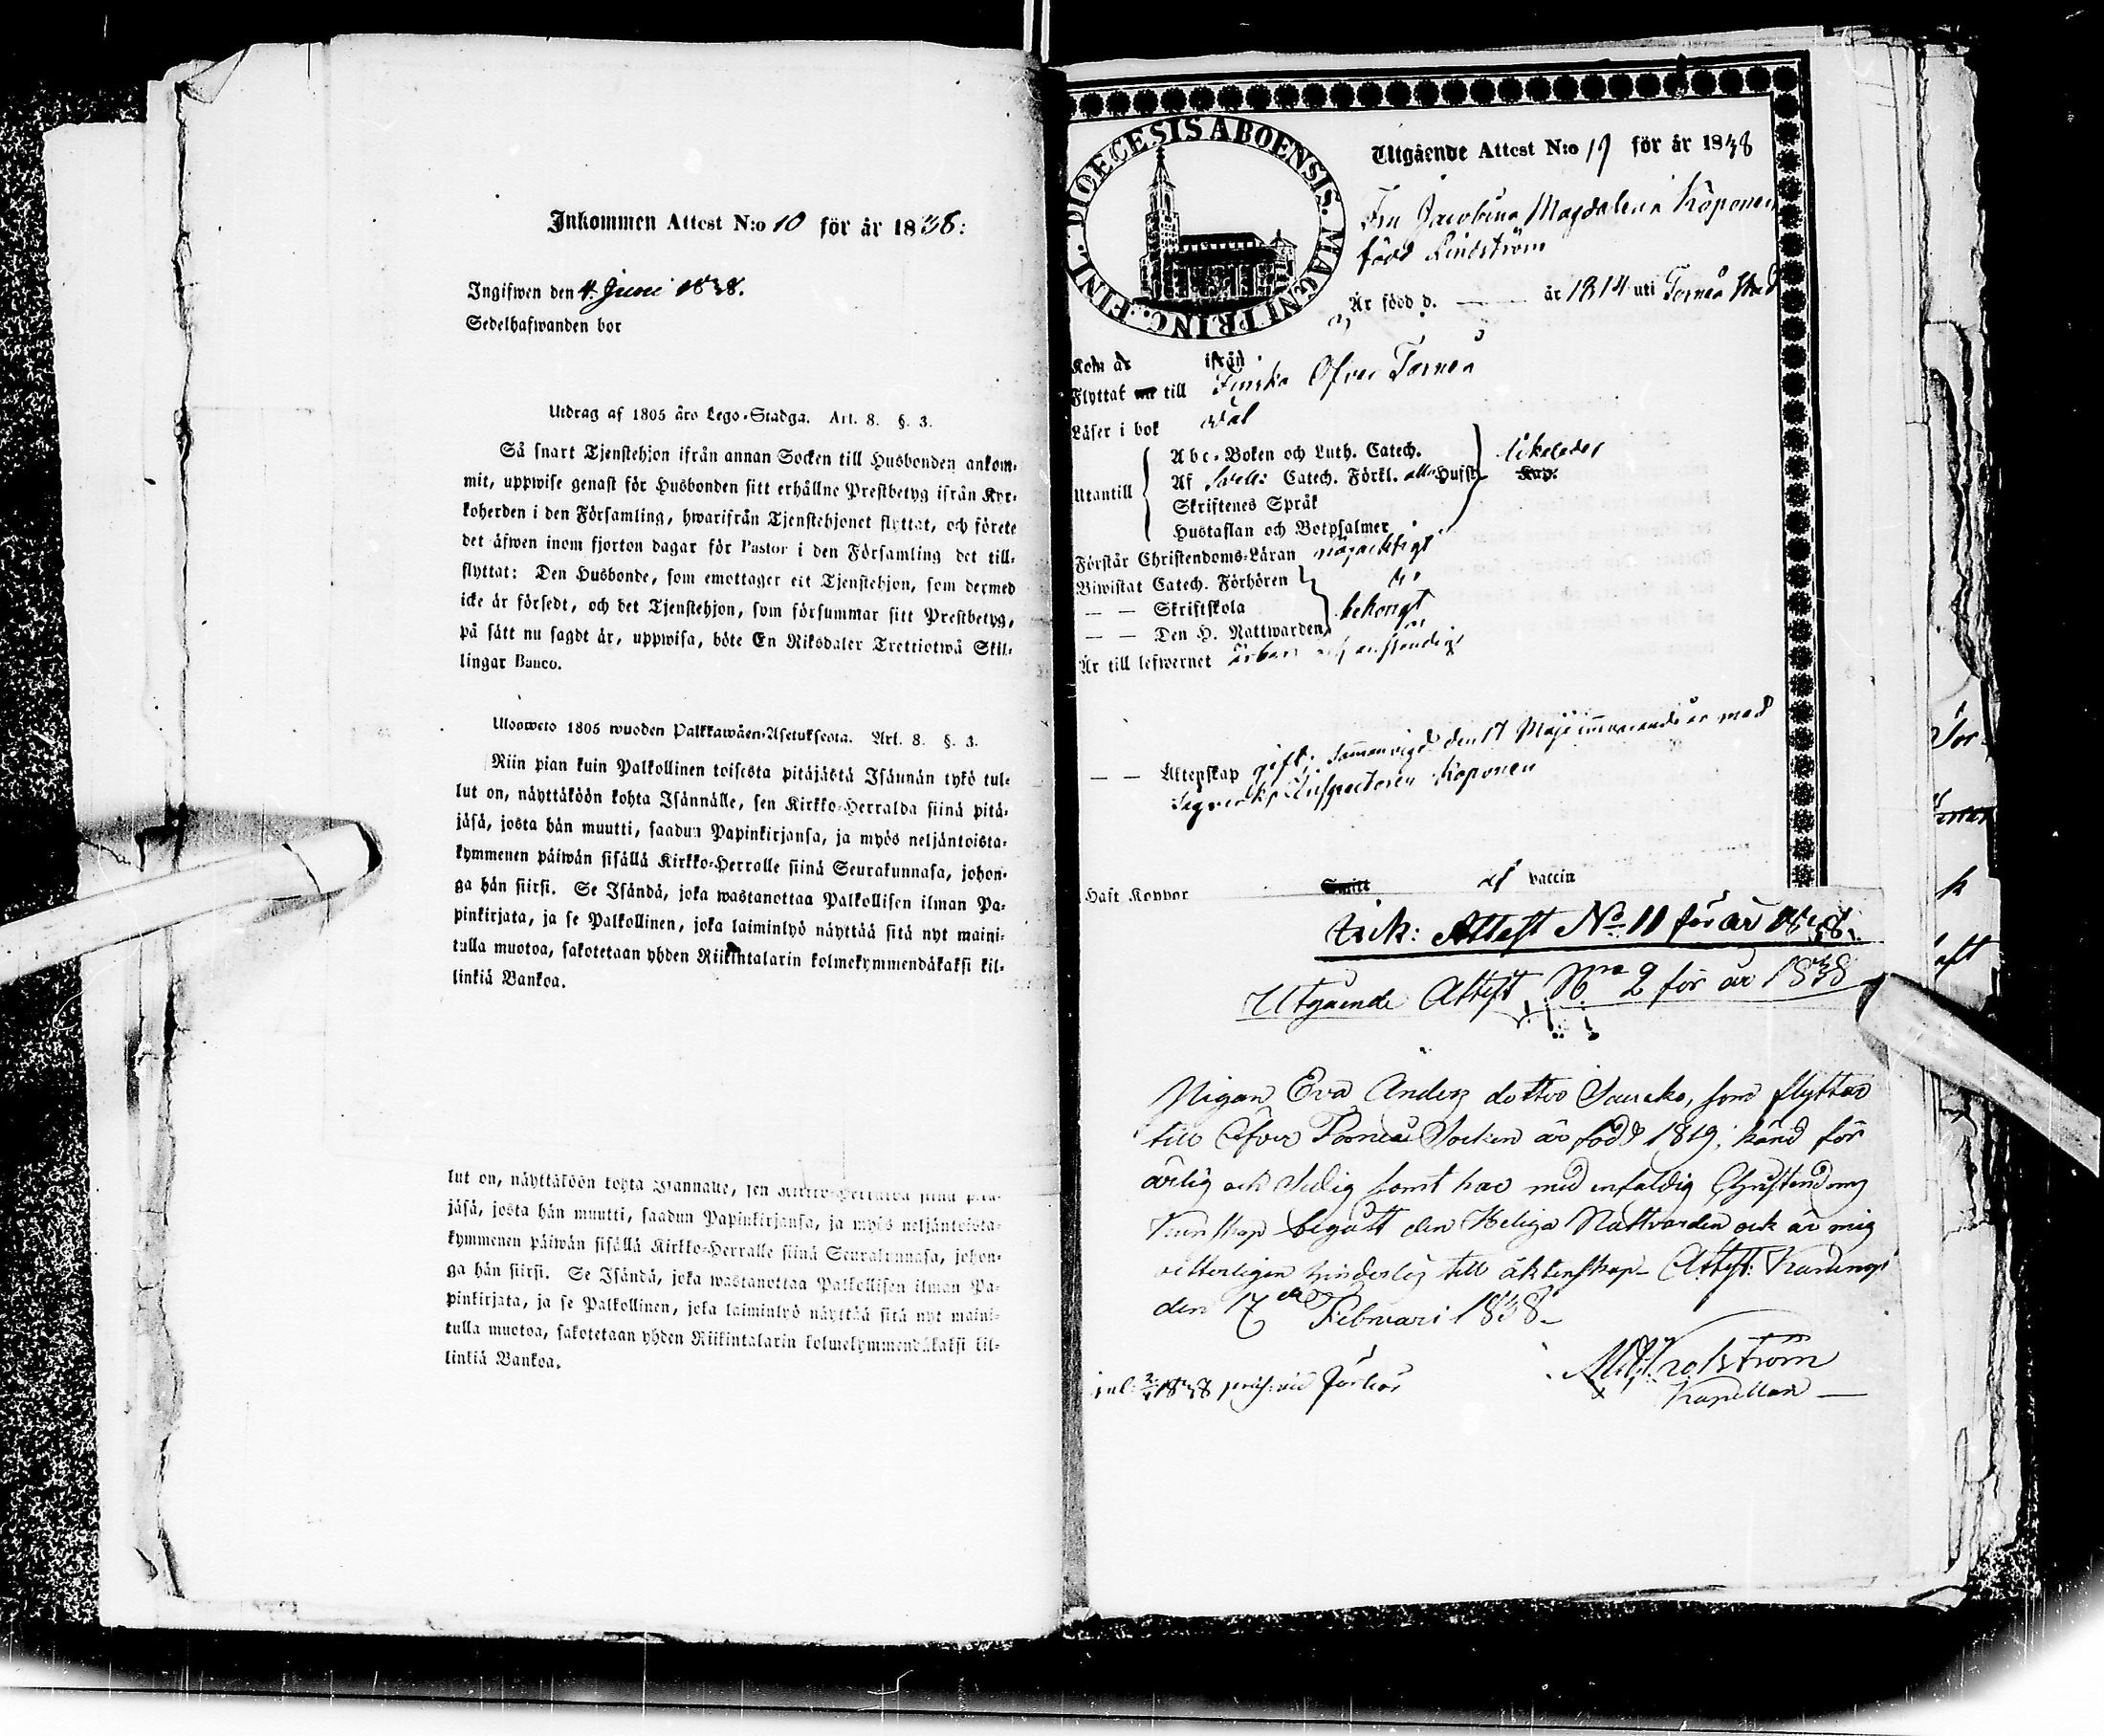 Inkommen Attest N:o 10 för år 1838:
Ingifwen den 4 Juni 1838.
Sedelhafwanden bor
Utdrag af 1805 års Lego-Stadga. Art. 8. §. 3.
Så snart Tjenstehjon ifrån annan Socken till Husbonden ankom-
mit, uppwise genast för Husbonden sitt erhållne Prestbetyg ifrån Kyr-
koherden i den Församling, hwarifrån Tjenstehjonet flyttat, och förete
det äfwen inom fjorton dagar för Pastor i den Församling det till-
flyttat: Den Husbonde, som emottager ett Tjenstehjon, som dermed
icke är försedt, och det Tjenstehjon, som försummar sitt Prestbetyg,
på sätt nu sagdt är, uppwisa, böte En Riksdaler Trettiotwå Skil-
lingar Banco.
Ulosweto 1805 wuoden Palkkawäen-Asetuksesta. Art. 8. §. 3.
Niin pian kuin Palkollinen toisesta pitäjästä Isännän tykö tul-
lut on, näyttäköön kohta Isännälle, sen Kirkko-Herralda siinä pitä-
jäsä, josta hän muutti, saadun Papinkirjansa, ja myös neljäntoista-
kymmenen päiwän sisällä Kirkko-Herralle siinä Seurakunnasa, johon-
ga hän siirsi. Se Isändä, joka wastanottaa Palkollisen ilman Pa-
pinkirjata, ja se Palkollinen, joka laiminlyö näyttää sitä nyt maini-
tulla muotoa, sakotetaan yhden Riikintalarin kolmekymmendäkaksi kil-
linkiä Bankoa.
lut on, näyttäköön kohta Isännälle, sen Kirkko-Herralda siinä pitä-
jäsä, josta hän muutti, saadun Papinkirjansa, ja myös neljäntoista-
kymmenen päiwän sisällä Kirkko-Herralle siinä Seurakunnasa, johon-
ga hän siirsi. Se Isändä, joka wastanottaa Palkollisen ilman Pa-
pinkirjata, ja se Palkollinen, joka laiminlyö näyttää sitä nyt maini-
tulla muotoa, sakotetaan yhden Riikintalarin kolmekymmendäkaksi kil-
linkiä Bankoa.
DIOECESIS ABOENSIS. MAGNI PRINC. FINL.
Utgående Attest N:o 19 för år 1838
Fru Jacobina Magdalena Koponen
född Lindström
Är född d. — år 1814 uti Torneå Stad
Kom år ifrån
Flyttat till Finska Öfver Torneå
Läser i bok wäl
Utantill
Abc-Boken och Luth. Catech. likaledes
Af Catech. Förkl. Hufst. Kap.
Skriftenes Språk
Hustaflan och Botpsalmer
Förstår Christendoms-Läran nöjacktigt
Biwistat Catech. Förhören
— — Skriftskola
— — Den H. Nattwarden
Är till lefwernet ärbar och anständig
— — Äktenskap gift; Sammanvigd den 17 Maji innevarande år med
Inspectoren Koponen
Haft Koppor af vaccin
Ink: Attest No 11 för år 1838.
Utgående Attest Nro 2 för år 1838
Pigan Eva Anders dotter som flyttar
till Öfver Torneå Socken är född 1819, känd för
ärlig och sedig samt har med enfaldig Christendoms
kunskap begått den Heliga Nattvarden och är mig
vetterligen hinderlös till äktenskap. Attest:
den 17 Februari 1838
1838 Förhör
Kapellan